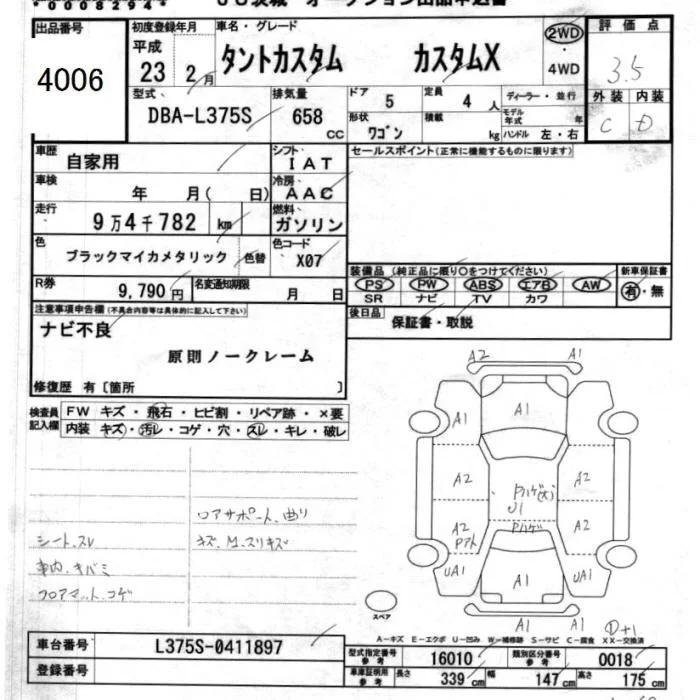 *0008294*
JU茨城 オークション出品申込書
出品番号 初度登録年月 車名・グレード 2WD 評価点
4006 平成 23 2月 タントカスタム カスタムX 4WD 3.5
型式 排気量 ドア 5 定員 4人 ディーラー・並行 外装 内装
DBA-L375S 658 CC 形状 ワゴン 積載 kg モデル年式 年 ハンドル 左・右 C D
車歴 自家用 シフト IAT セールスポイント(正常に機能するものに限ります)
車検 年 月( 日) 冷房 AAC
走行 9万4千782 km 燃料 ガソリン
色 ブラックマイカメタリック 色替 色コード X07
装備品(純正品に限り○をつけてください) 新車保証書
PS PW ABS エアB AW 有・無
SR ナビ TV カワ
R券 9,790円 名変通知期限 月 日
後日品 保証書・取説
注意事項申告欄(不具合内容等は具体的に記入して下さい)
ナビ不良
原則ノークレーム
修復歴 有〔箇所 〕
検査員記入欄 FW キズ・飛石・ヒビ割・リペア跡・×要
内装 キズ・汚レ・コゲ・穴・スレ・キレ・破レ
A2 A1
A1 A1 A1
A2 A2
ドハゲ(大)
U1
ドハゲ
A2 A2
Pアト
UA1 A1 UA1
A1 A1
スペア
ロアサポート曲り
シート.スレ キズ.M.スリキズ
車内.キバミ
フロアマット.コゲ
D+1
A-キズ E-エクボ U-凹み W-補修跡 S-サビ C-腐食 XX-交換済
車台番号 L375S-0411897
登録番号
型式指定番号 参考 16010 類別区分番号 参考 0018
車庫証明用 参考 長さ 339cm 幅 147cm 高さ 175cm